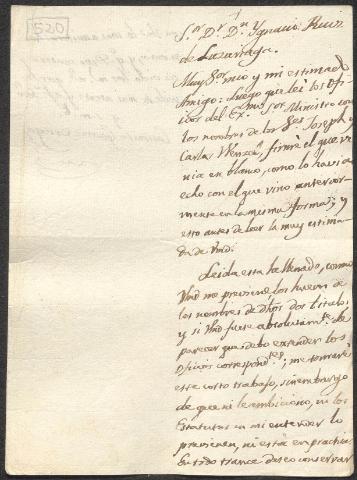 520
S.or D.r D.n Ygnacio Ruiz
de Luzuriaga.
Muy S.or mio y mi estimado
Amigo: Luego que leí los Ofi
cios del Ex.mo S.or Ministro con
los nombres de los S.res Joseph y
Carlos Wenzel, firmé el que ve
nia en blanco, como lo havia
echo con el que vino anterior
mente en la misma forma; y
esto antes de leer la muy estima
da de Vmd.
Leida esta he llenado, como
Vmd me previene los huecos de
los nombres de dhos dos titulos,
y si Vmd fuese absolutam.te de
parecer que debo extender los
Oficios correspond.tes, me tomaré
este corto trabajo, sin embargo
de que ni le ambiciono, ni los
Estatutos en mi entender lo
previenen, ni está en practica.
En todo trance deseo conservar